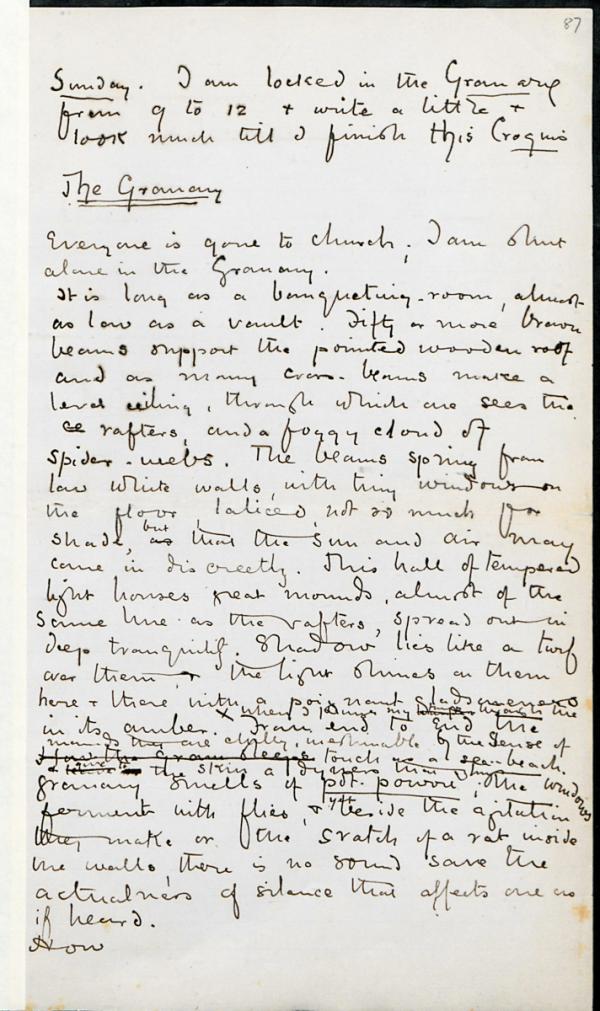 87
Sunday. I am locked in the Granary
from 9 to 12 + write a little +
look much till I finish this Croquis
The Granary
Everyone is gone to church; I am shut
alone in the Granary.
It is long as a banqueting-room, almost
as low as a vault. Fifty or more brown
beams support the pointed wooden roof
and as many cross-beams make a
level ceiling, through which one sees the
rafters, and a foggy cloud of
spider-webs. The beams spring from
low white walls, with tiny windows on
the floor, laticed, not so much for
shade, but as that the sun and air may
come in discreetly. This hall of tempered
light houses great mounds, almost of the
same hue as the rafters, spread out in
deep tranquility. Shadow lies like a turf
over them + the light shines on them
here + there with a poignant gladsomeness
x when I my through the
in its amber. From end to end the
mounds they are chilly, inestimable by the sense of
Home the Grain sleeps touch as a sea-beach
+ the skin a
granary smells of pot-pourri, the windows
ferment with flies, + yet beside the agitation
they make or the sratch of a rat inside
the walls, there is no sound save the
actualness of silence that affects one as
if heard.
How